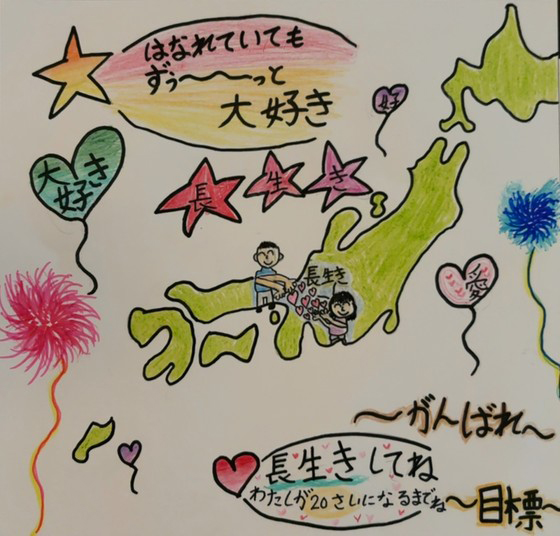 はなれていても
ずぅ〜〜〜っと
大好き
好
大好き
長生き
長生き
愛
〜がんばれ〜
長生きしてね
わたしが20さいになるまでね
〜目標〜